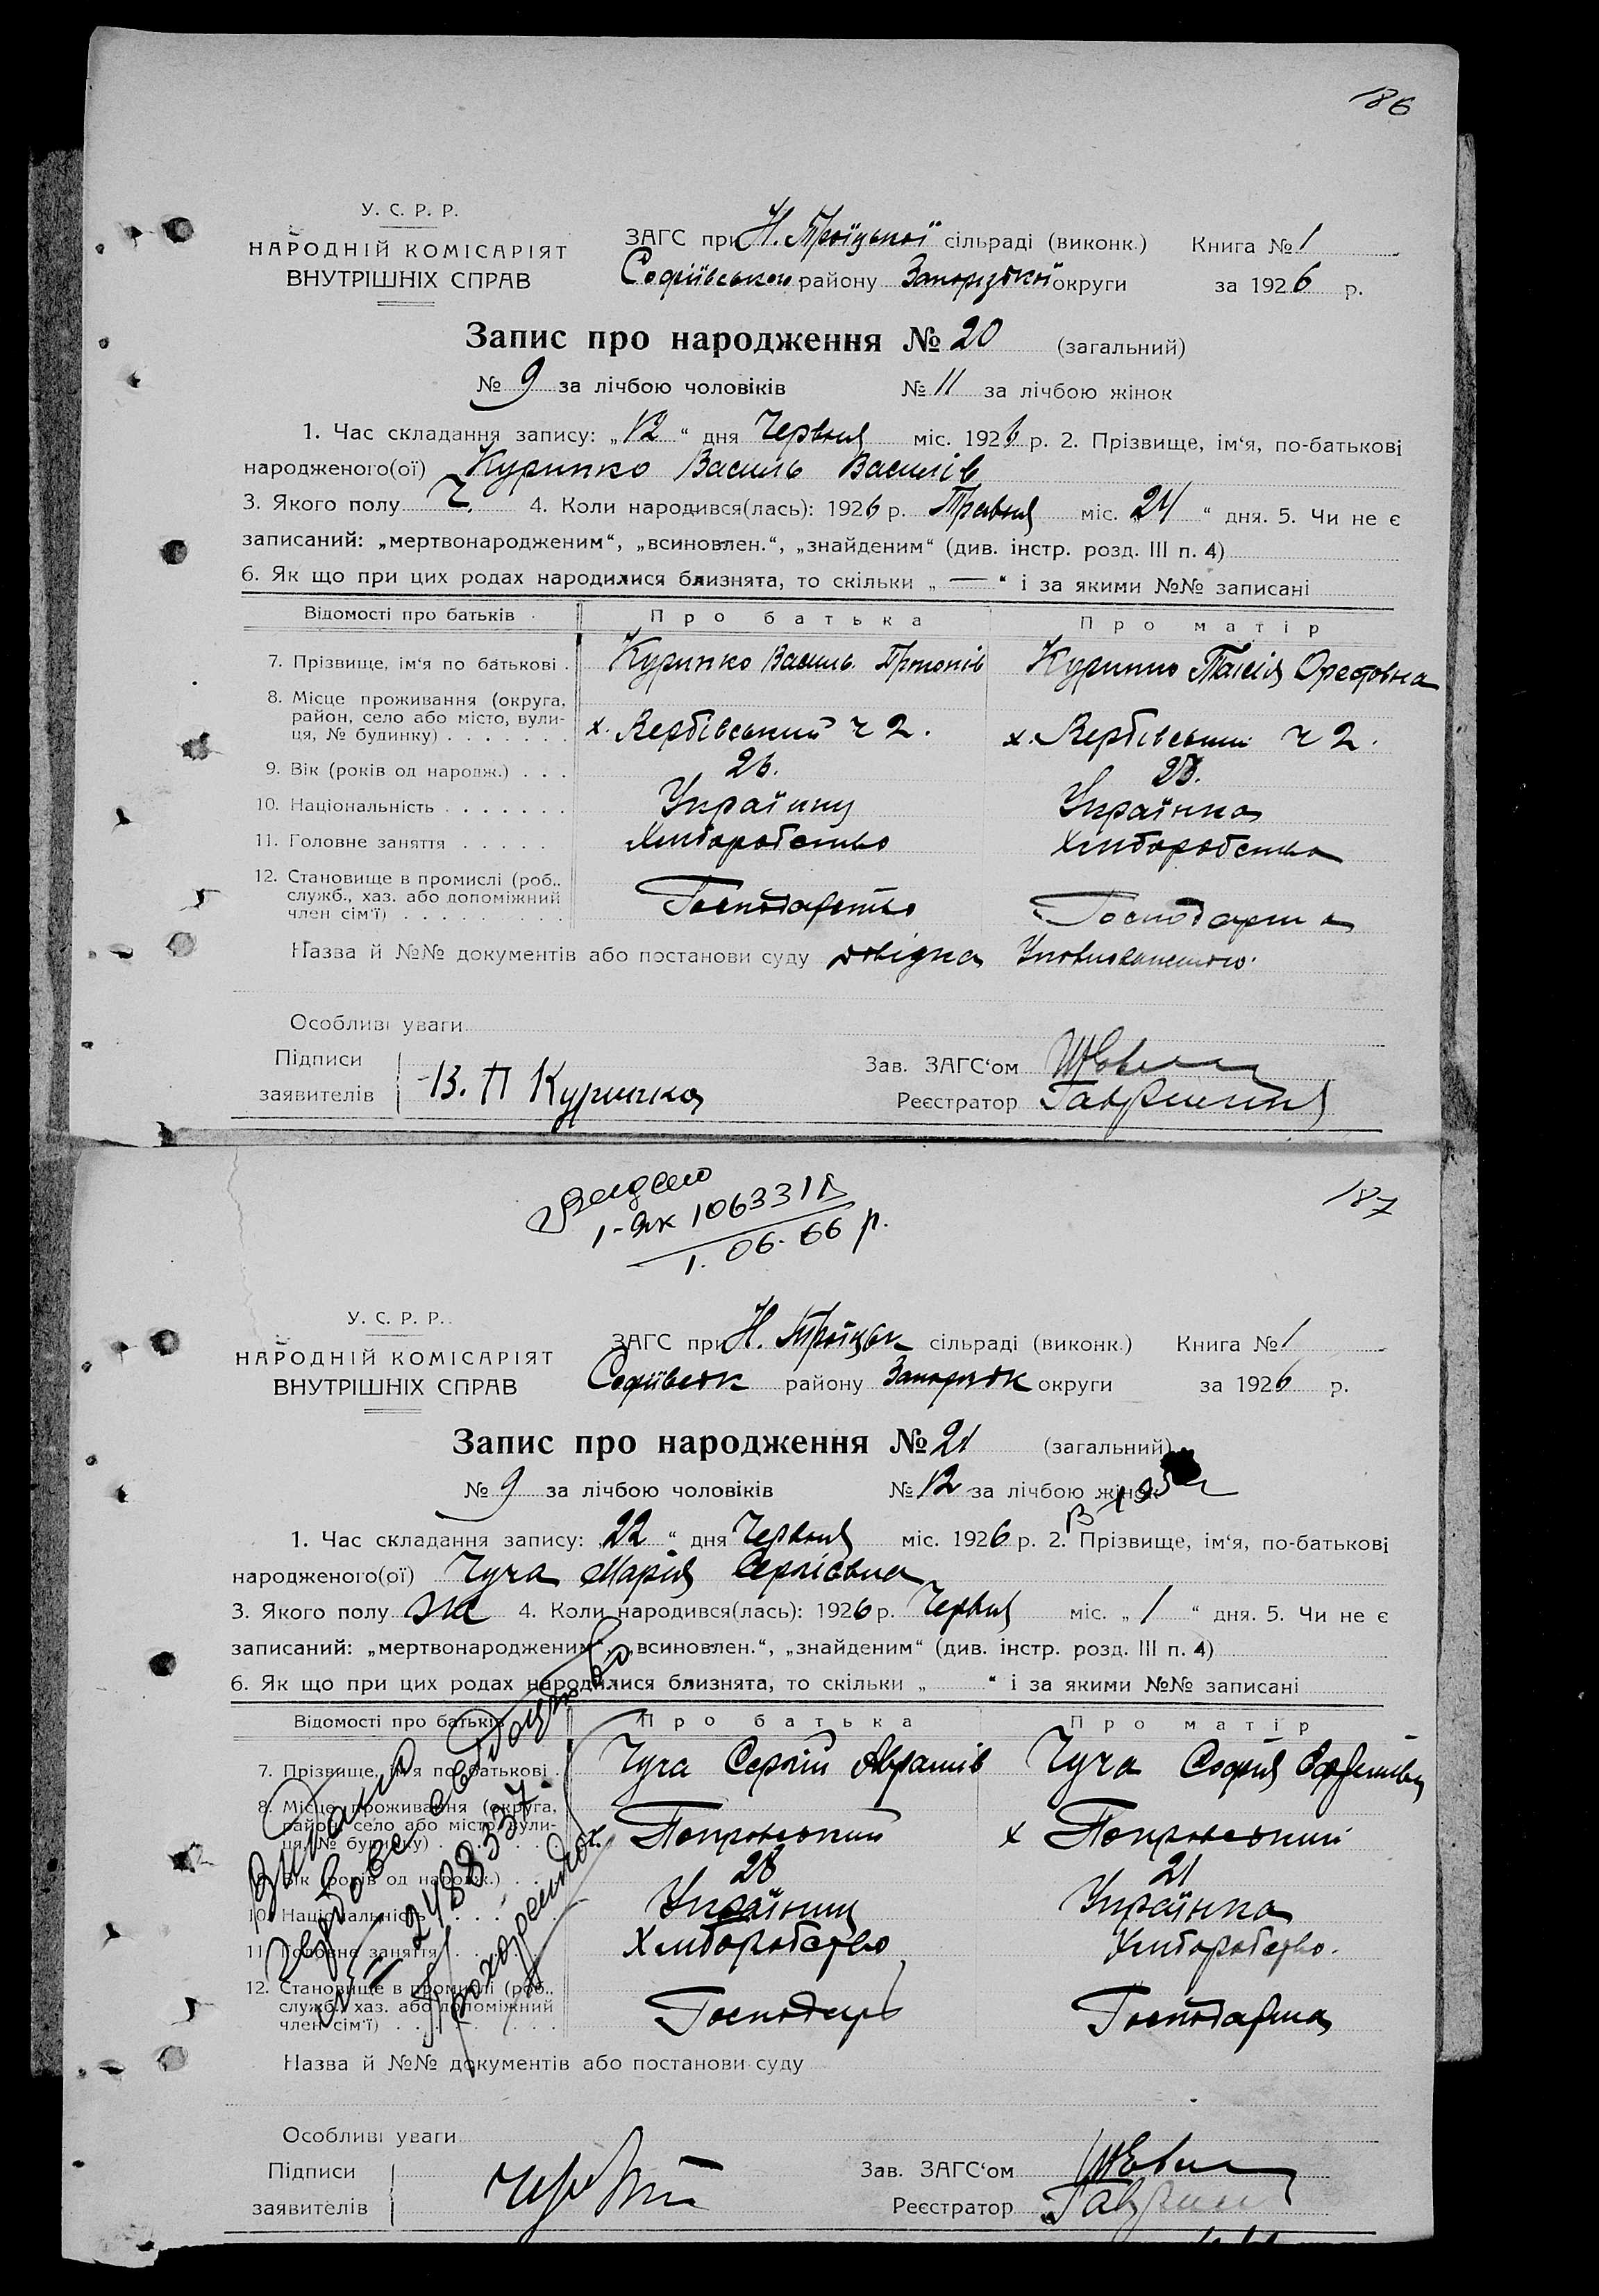 186
У. С. Р. Р.
НАРОДНІЙ КОМІСАРІЯТ
ВНУТРІШНІХ СПРАВ
ЗАГС при Н. Троїцької сільраді (виконк.) Книга № 1
Софіївського району Запорізької округи за 1926 р.
Запис про народження № 20 (загальний)
№ 9 за лічбою чоловіків № 11 за лічбою жінок
1. Час складання запису: „12“ дня Червня міс. 1926 р. 2. Прізвище, ім‘я, по-батькові
народженого(ої) Курипко Василь Василів
3. Якого полу Ч. 4. Коли народився(лась): 1926 р. Травня міс. 24 “ дня. 5. Чи не є
записаний: „мертвонародженим“, „всиновлен.“, „знайденим“ (див. інстр. розд. III п. 4)
6. Як що при цих родах народилися близнята, то скільки „ — “ і за якими №№ записані
Відомості про батьків Про батька Про матір
7. Прізвище, ім‘я по батькові . Курипко Василь Курипко Таісія Орестовна
8. Місце проживання (округа,
район, село або місто, вули-
ця, № будинку) . . . . . . . х. Вербівський ч 2. х. Вербівський ч 2.
9. Вік (років од народж.) . . . 26.
10. Національність . . . . . . . Українец Українка
11. Головне заняття . . . . . Хліборобство Хліборобство
12. Становище в промислі (роб.,
служб., хаз. або допоміжний
член сім‘ї) . . . . . . . . . Господарство Господарка
Назва й №№ документів або постанови суду довідка
Особливі уваги
Підписи
заявителів В. П Курипка
Зав. ЗАГС‘ом
Реєстратор
187
Видано
1-ЯК 106331
1. 06. 66 р.
У. С. Р. Р.
НАРОДНІЙ КОМІСАРІЯТ
ВНУТРІШНІХ СПРАВ
ЗАГС при Н. Троїцьк сільраді (виконк.) Книга № 1
Софіївськ району Запорізьк округи за 1926 р.
Запис про народження № 21 (загальний)
№ 9 за лічбою чоловіків № 12 за лічбою жінок
1. Час складання запису: „22“ дня Червня міс. 1926 р. 2. Прізвище, ім‘я, по-батькові
народженого(ої) Чуча Марія Сергієвна
3. Якого полу жі 4. Коли народився(лась): 1926 р. Червня міс. „ 1 “ дня. 5. Чи не є
записаний: „мертвонародженим“, „всиновлен.“, „знайденим“ (див. інстр. розд. III п. 4)
6. Як що при цих родах народилися близнята, то скільки „ “ і за якими №№ записані
Відомості про батьків Про батька Про матір
7. Прізвище, ім‘я по батькові . Чуча Сергій Аврамів Чуча Софія
8. Місце проживання (округа,
район, село або місто, вули-
ця, № будинку) х. Покровський х Покровський
9. Вік (років од народж.) . . . 28 21
10. Національність Українец Українка
11. Головне заняття Хліборобство Хліборобство.
12. Становище в промислі (роб.,
служб., хаз. або допоміжний
член сім‘ї) Господарь Господарка
Назва й №№ документів або постанови суду
Особливі уваги
Підписи
заявителів
Зав. ЗАГС‘ом
Реєстратор